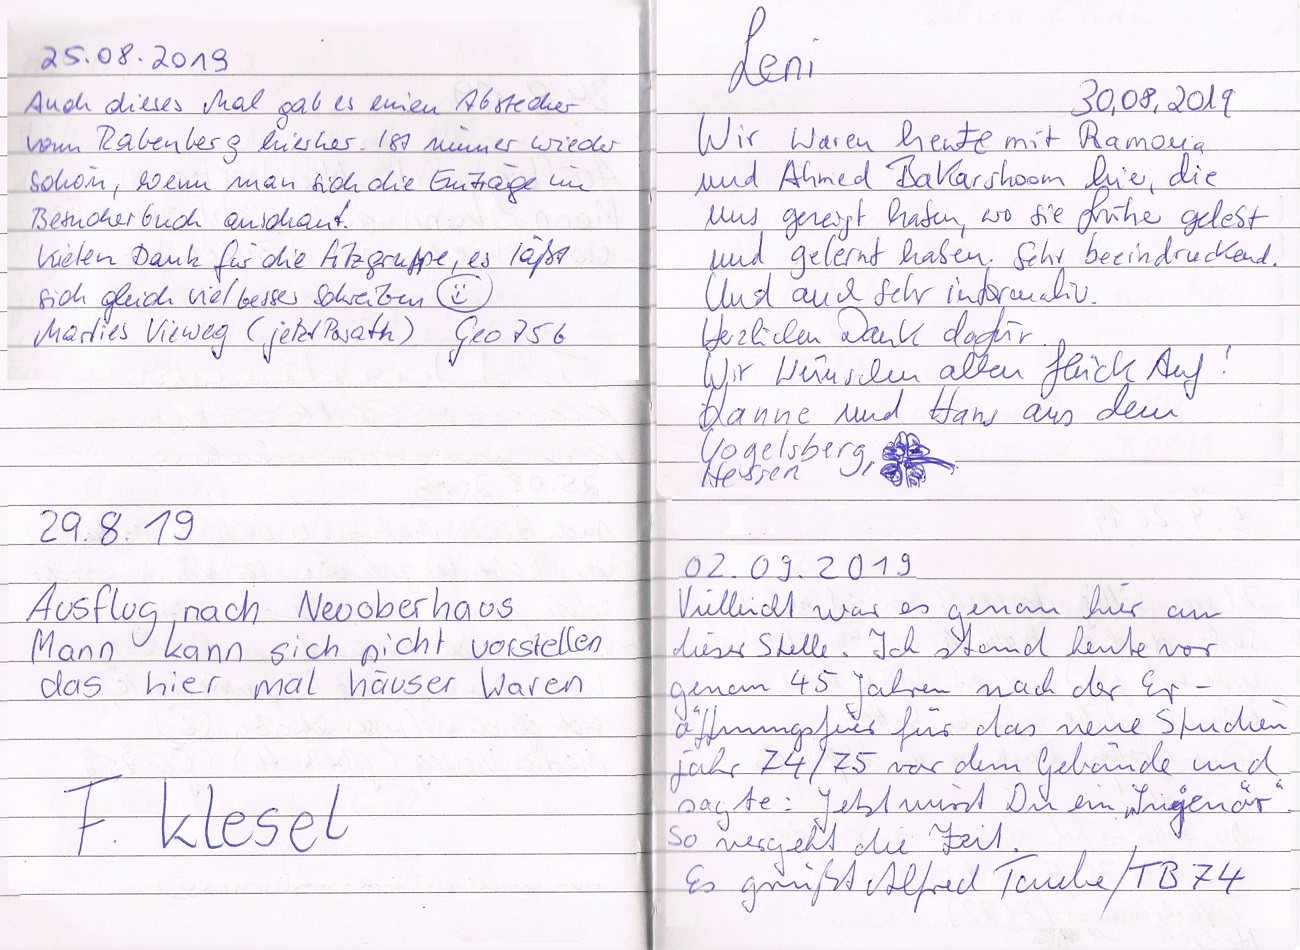 25.08.2019
Auch dieses Mal gab es einen Abstecher
vom Rabenberg hierher. Ist immer wieder
schön, wenn man sich die Einträge im
Besucherbuch anschaut.
Vielen Dank für die Sitzgruppe, es läßt
sich gleich viel besser schreiben
Marlies Vieweg (jetzt Posath) Geo 756
29.8.19
Ausflug nach Neuoberhaus
Mann kann sich nicht vorstellen
das hier mal häuser Waren
F. Klesel
Leni
30.08.2019
Wir waren heute mit Ramona
und Ahmed BaKarshoom hier, die
uns gezeigt haben, wo sie früher gelebt
und gelernt haben. Sehr beeindruckend.
Und auch sehr informativ.
Herzlichen Dank dafür.
Wir wünschen allen Glück Auf!
Hanne und Hans aus dem
Vogelsberg,
Hessen
02.09.2019
Vielleicht war es genau hier an
dieser Stelle. Ich stand heute vor
genau 45 Jahren nach der Er-
öffnungsfeier für das neue Studien
jahr 74/75 vor dem Gebäude und
sagte: Jetzt wirst Du ein „Inigenör“.
So vergeht die Zeit.
Es grüßt Alfred Tauche/TB 74